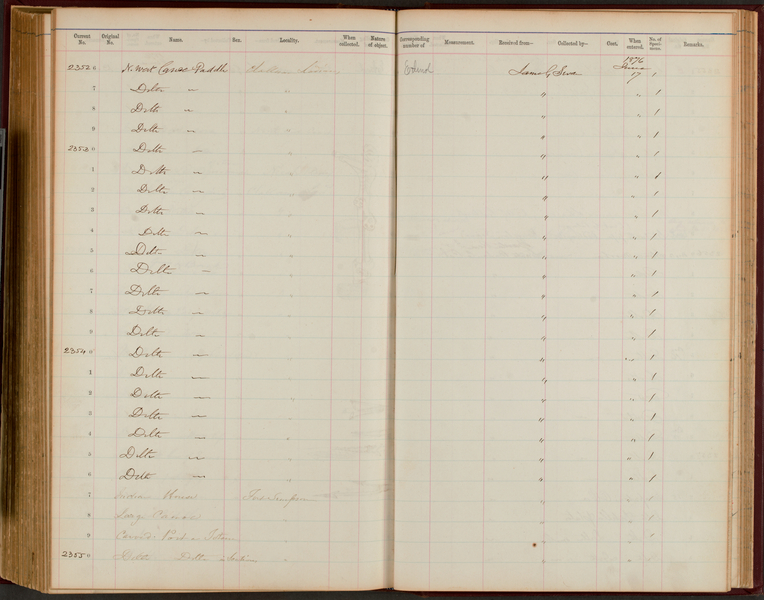 Current No. Original No. Name. Sex. Locality. When collected. Nature of object. Corresponding number of Measurement. Received from— Collected by— Cost. When entered. No. of Specimens. Remarks.
1876
23520 N. West Canoe Paddle June 17 1
7 Ditto " " " 1
8 Ditto " " " 1
9 Ditto " " " 1
23530 Ditto " " " 1
1 Ditto " " " 1
2 Ditto " " " 1
3 Ditto " " " 1
4 Ditto " " " 1
5 Ditto " " " 1
6 Ditto " " " 1
7 Ditto " " " 1
8 Ditto " " " 1
9 Ditto " " " 1
23540 Ditto " " " 1
1 Ditto " " " 1
2 Ditto " " " 1
3 Ditto " " " 1
4 Ditto " " " 1
5 Ditto " " " 1
6 Ditto " " " 1
7 Indian House Fort Simpson " 1
8 Large Canoe " " 1
9 Carved " 1
23550 Ditto Ditto " " 1